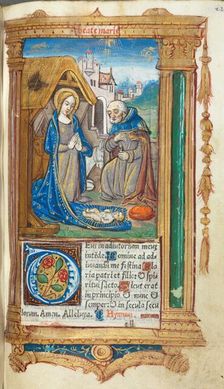 beate marie
Deus in adiutorium meum
intēde. Domine ad ad
iuuandū me festina. Gloria
patri et filio: et spi
ritui sācto. Sicut erat
in principio et nunc et
semper: et in secula secu
lorum. Amen. Alleluya. Hymnus.